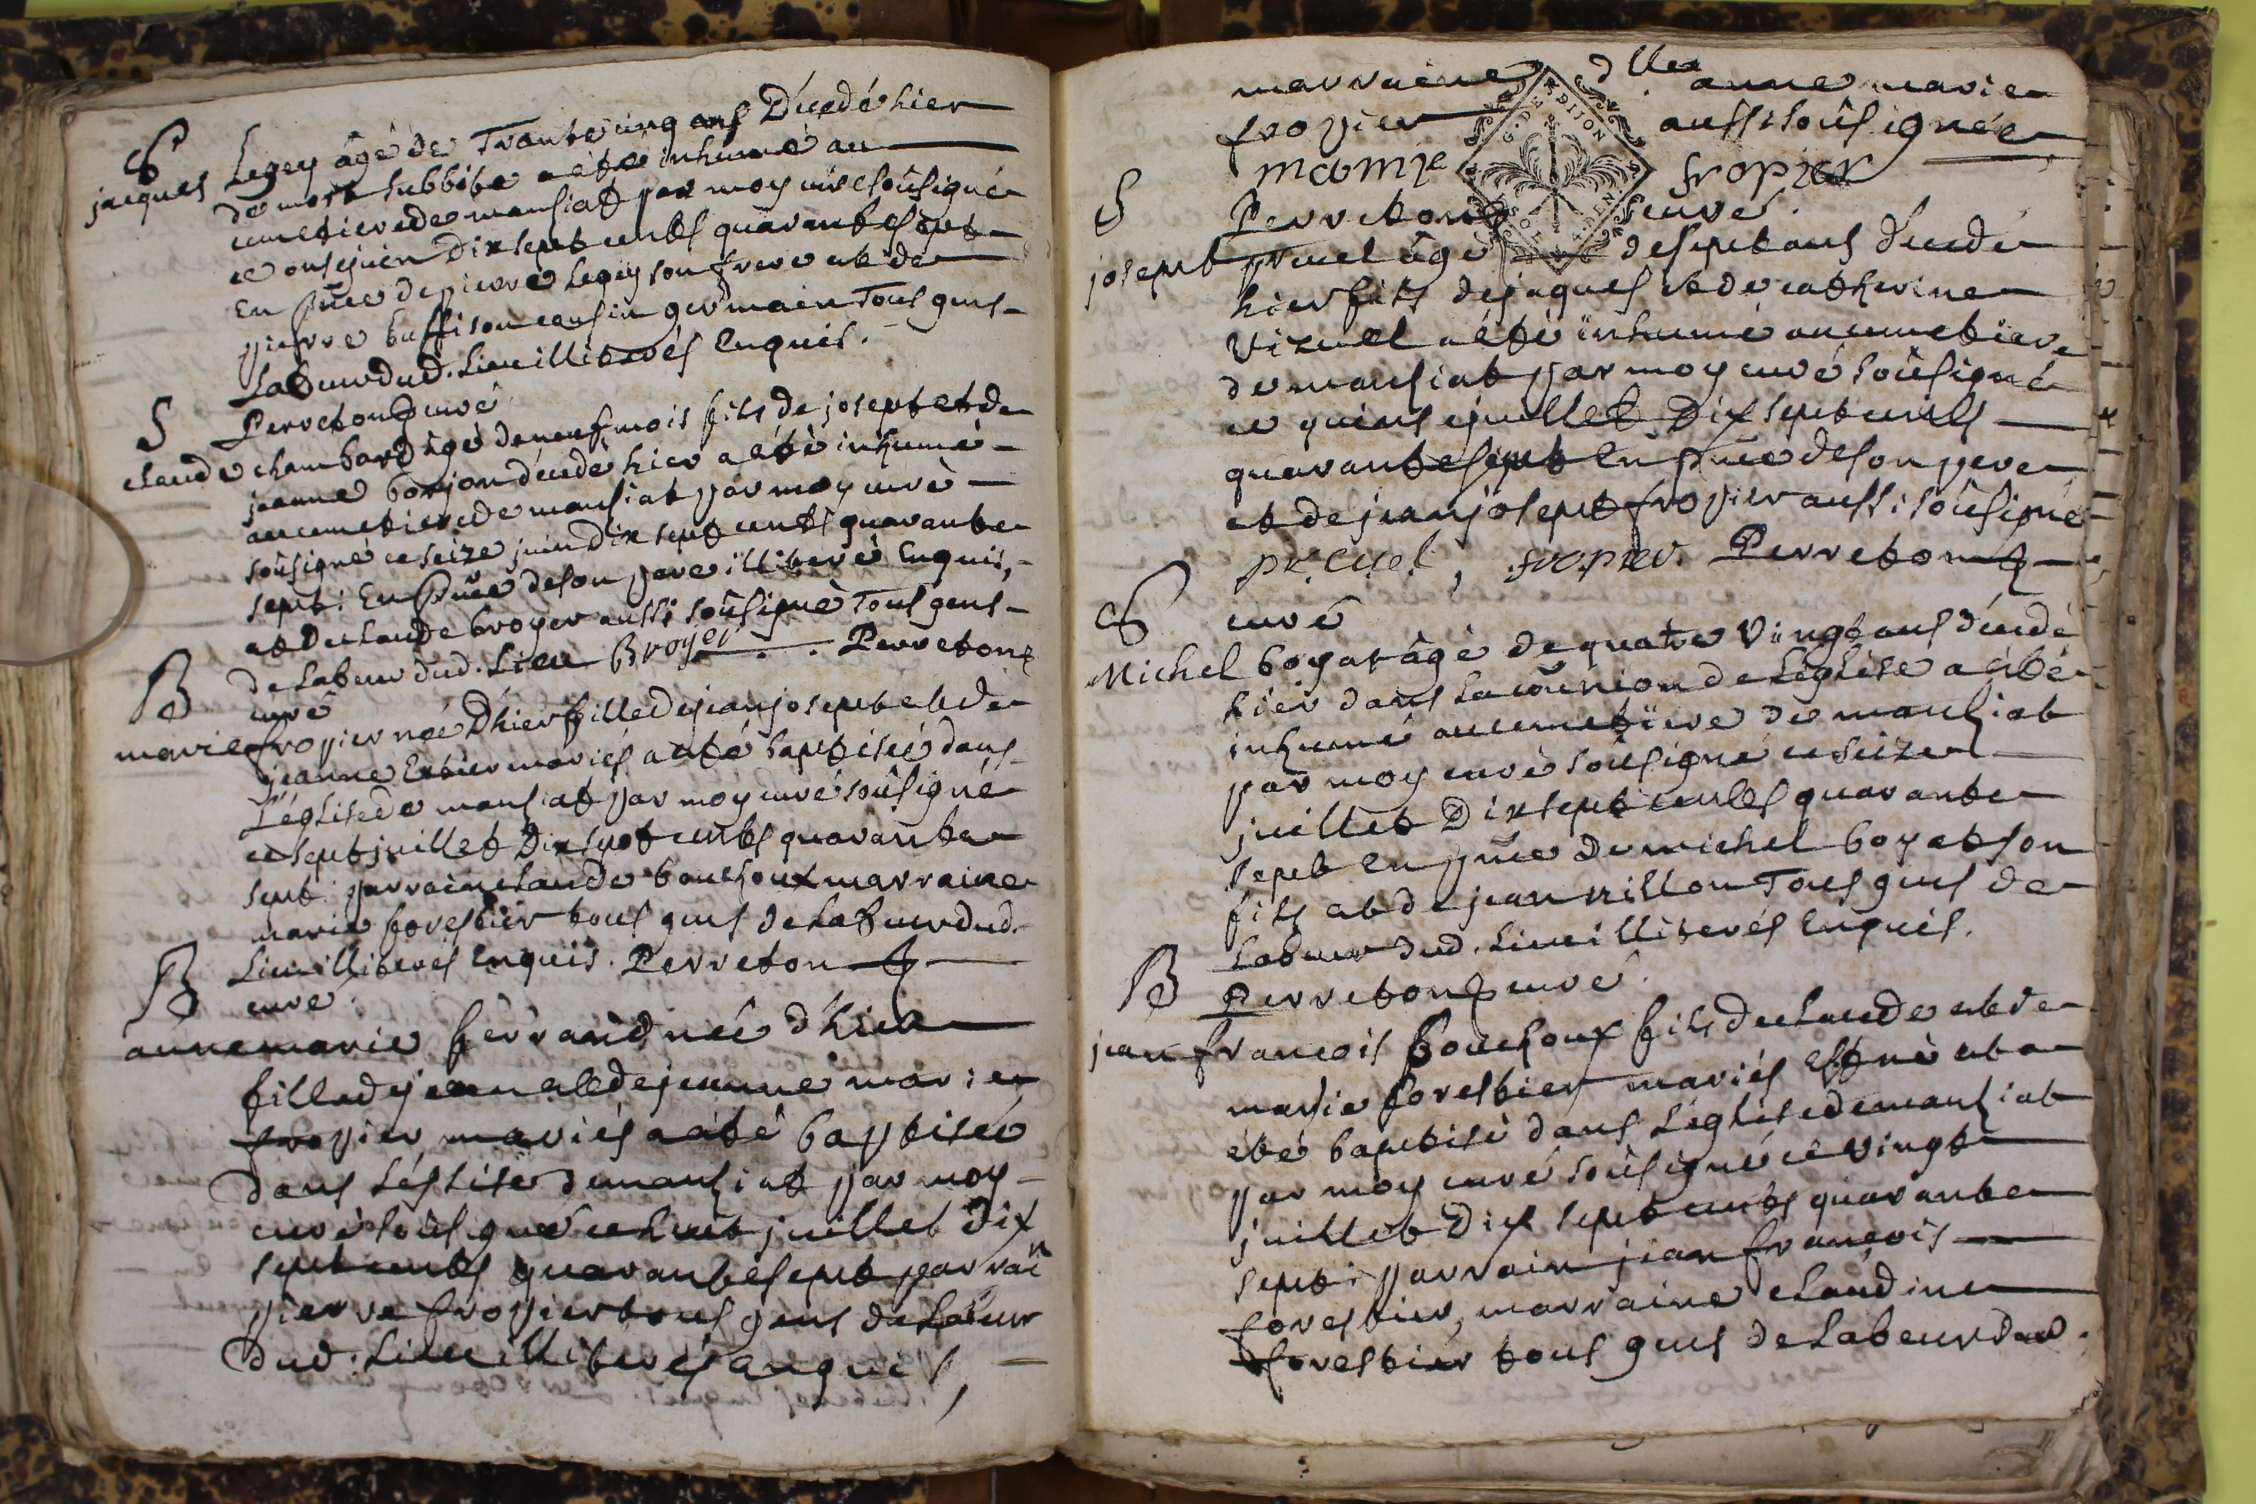 S
jacques Legey âgé de Trante cinq ans Décedé hier
de mort subbite a été inhumé au
cimetiere de mansiat par moy curé soûsigné
ce onse juin Dix sept cents quarante sept
En pñce de pierre Legey son frere et de
pierre buffi son cousin germain Tous gens
Labeur dud. Lieu illiterés Enquis.
Perreton curé
S
claude chambard âgé de neuf mois fils de josept et de
jeanne borjon décedé hier a été inhumé
au cimetiere de mansiat par moy curé
soûsigné ce seize juin Dix sept cents quarante
sept. En pñce de son pere illiteré Enquis,
et De claude broyer aussi soûsigné Tous gens
de Labeur dud. Lieu Broyer Perreton
curé
B
marie fropier née D'hier fille de jean josept et de
jeanne mariés a été baptiseé dans
L'églisede mansiat par moy curé soûsigné
ce sept juillet Dix sept cents quarante
sept. parrain claude bouchoux marraine
marie forestier tous gens de Labeur dud.
Lieu illiterés Enquis. Perreton
curé.
B
anne marie ferrand née d'hier
fille de jean et de jeanne marie
fropier mariés a été baptiseé
dans L'églisede manziat par moy
curé soûsigné ce huit juillet dix
sept cents quarante sept parraiñ
pierre fropier tous gens de Labeur
dud. Lieu illiterés enquis,
marraine dlle anne marie
fropier aussi soûsignée
G. DE DIJON
fropier
Perreton curé.
S
josept pruel âgé de sept ans décedé
hier fils de jaques et de catherine
Vizuel a été inhumé au cimetiere
de mansiat par moy curé soûsigné
ce quinse juillet Dix sept cents
quarante sept En pñce de son pere
et de jean josept fropier aussi soûsigné
pruel, fropier. Perreton
curé
S
Michel boyat âgé de quatre Vingt ans décedé
hier dans La com̃union de L'église a été
inhumé au cimetiere de manziat
par moy curé soûsigné ce seize
juillet Dix sept cents quarante
sept En pñce de michel boyat son
fils et de jean nillon Tous gens de
Labeur dud. Lieu illiterés Enquis.
Perreton curé.
B
jean francois Bouchoux fils de claude et de
marie forestier mariés est né et a
été baptisé dans L'églisede manziat
par moy curé soûsigné ce vingt
juillet Dix sept cents quarante
sept. parrain jean françois
forestier, marraine claudine
forestier tous gens de Labeur dud.